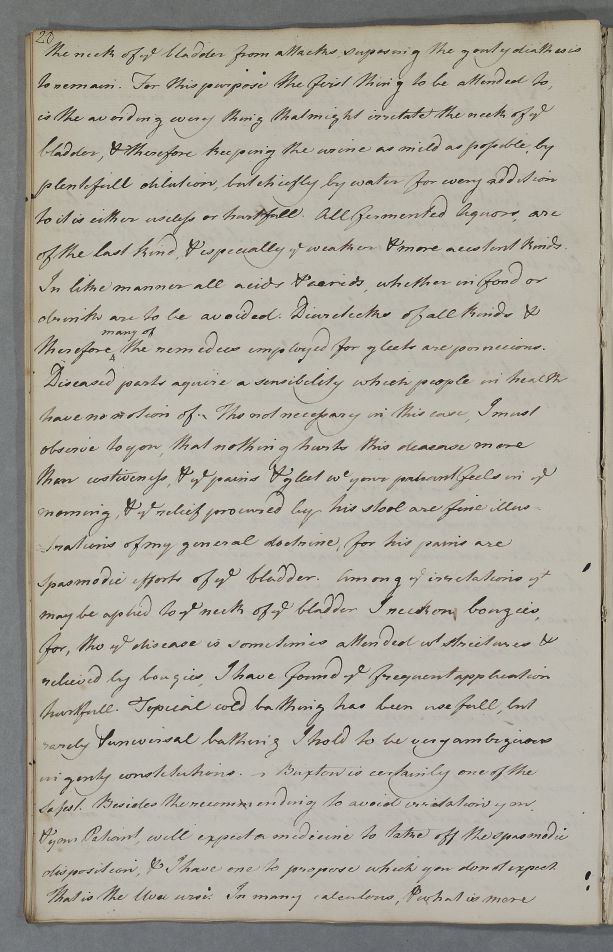 20
the neck of ye bladder from attacks, suposing the gouty diathesis
to remain. For this purpose the first thing to be attended to,
is the avoiding every thing that might irretate the neck of ye
bladder, & therefore keeping the urine as mild as possible, by
plentifull dilution, but chiefly by water for every addition
to it is either useless or hurtfull. All fermented liquors, are
of the last kind, & especially ye weaker & more acescent kinds.
In like manner all acids & acrids, whether in food or
drink are to be avoided. Diureticks of all kinds &
many of
therefore, the remedies employed for gleets are pernicious.
Diseased parts aquire a sensibility which people in health
have no notion of. Tho not necessary in this case, I must
observe to you, that nothing hurts this desease more
than costiveness, & ye pains & gleet wc your patient feels in ye
morning, & ye relief procured by his stool are fine illus-
trations of my general doctrine, for his pains are
spasmodic efforts of ye bladder. Among ye irretations yt
may be aplied to ye neck of ye bladder I reckon bougies,
for, tho ye disease is sometimes attended wt strictures &
relieved by bougies, I have found ye frequent application
hurtfull. Topical cold bathing has been usefull, but
rarely & universal bathing I hold to be very ambiguous
in gouty constitutions. Buxton is certainly one of the
safest. Besides the recommending to avoid irretation you,
& your Patient, will expect a medicine to take off the spasmodic
disposition, & I have one to propose which you do not expect
that is the Uva ursi. In many calculous, & what is more